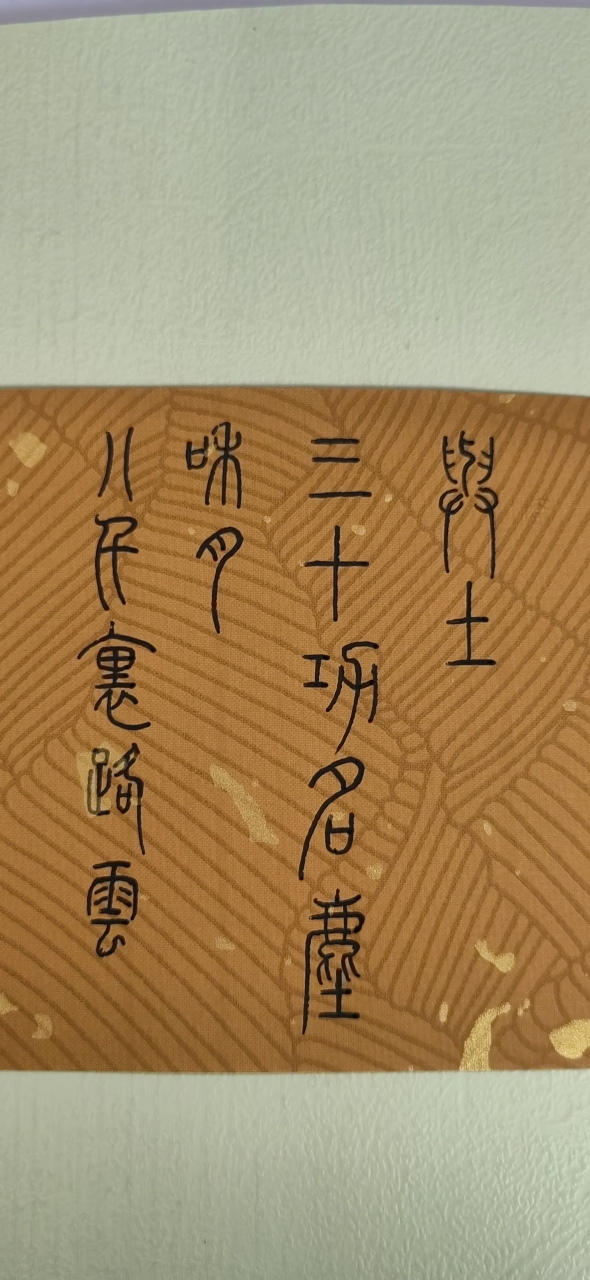 三十功名塵
與土
八千裏路雲
咊月